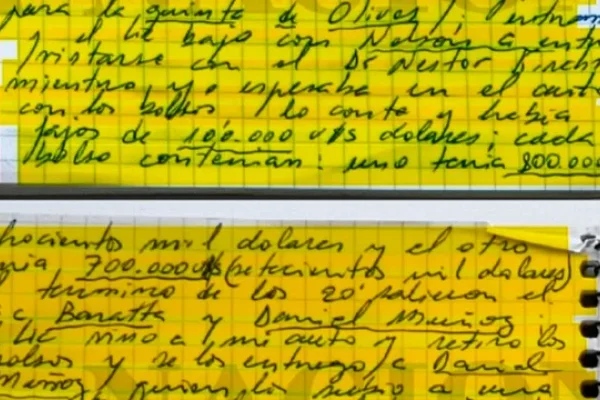 para la quinta de Olivos /. Entram
y el Lic bajo con Nelson a entre
/vistarse con el Dr Nestor Kirch
mientras yo esperaba en el auto
con los bolsos / lo conte y habia
fajos de 100.000 u$s dolares; cada
bolso contenian: uno tenia 800.000
hocientos mil dolares y el otro
nia 700.000 u$s (setecientos mil dolares)
termino de los 20' salieron el
c Baratta y Daniel Muñoz
Lic vino a mi auto y retiro los
bolsos y se los entrego / a Daniel
Muñoz / quien los subio a una
NACION